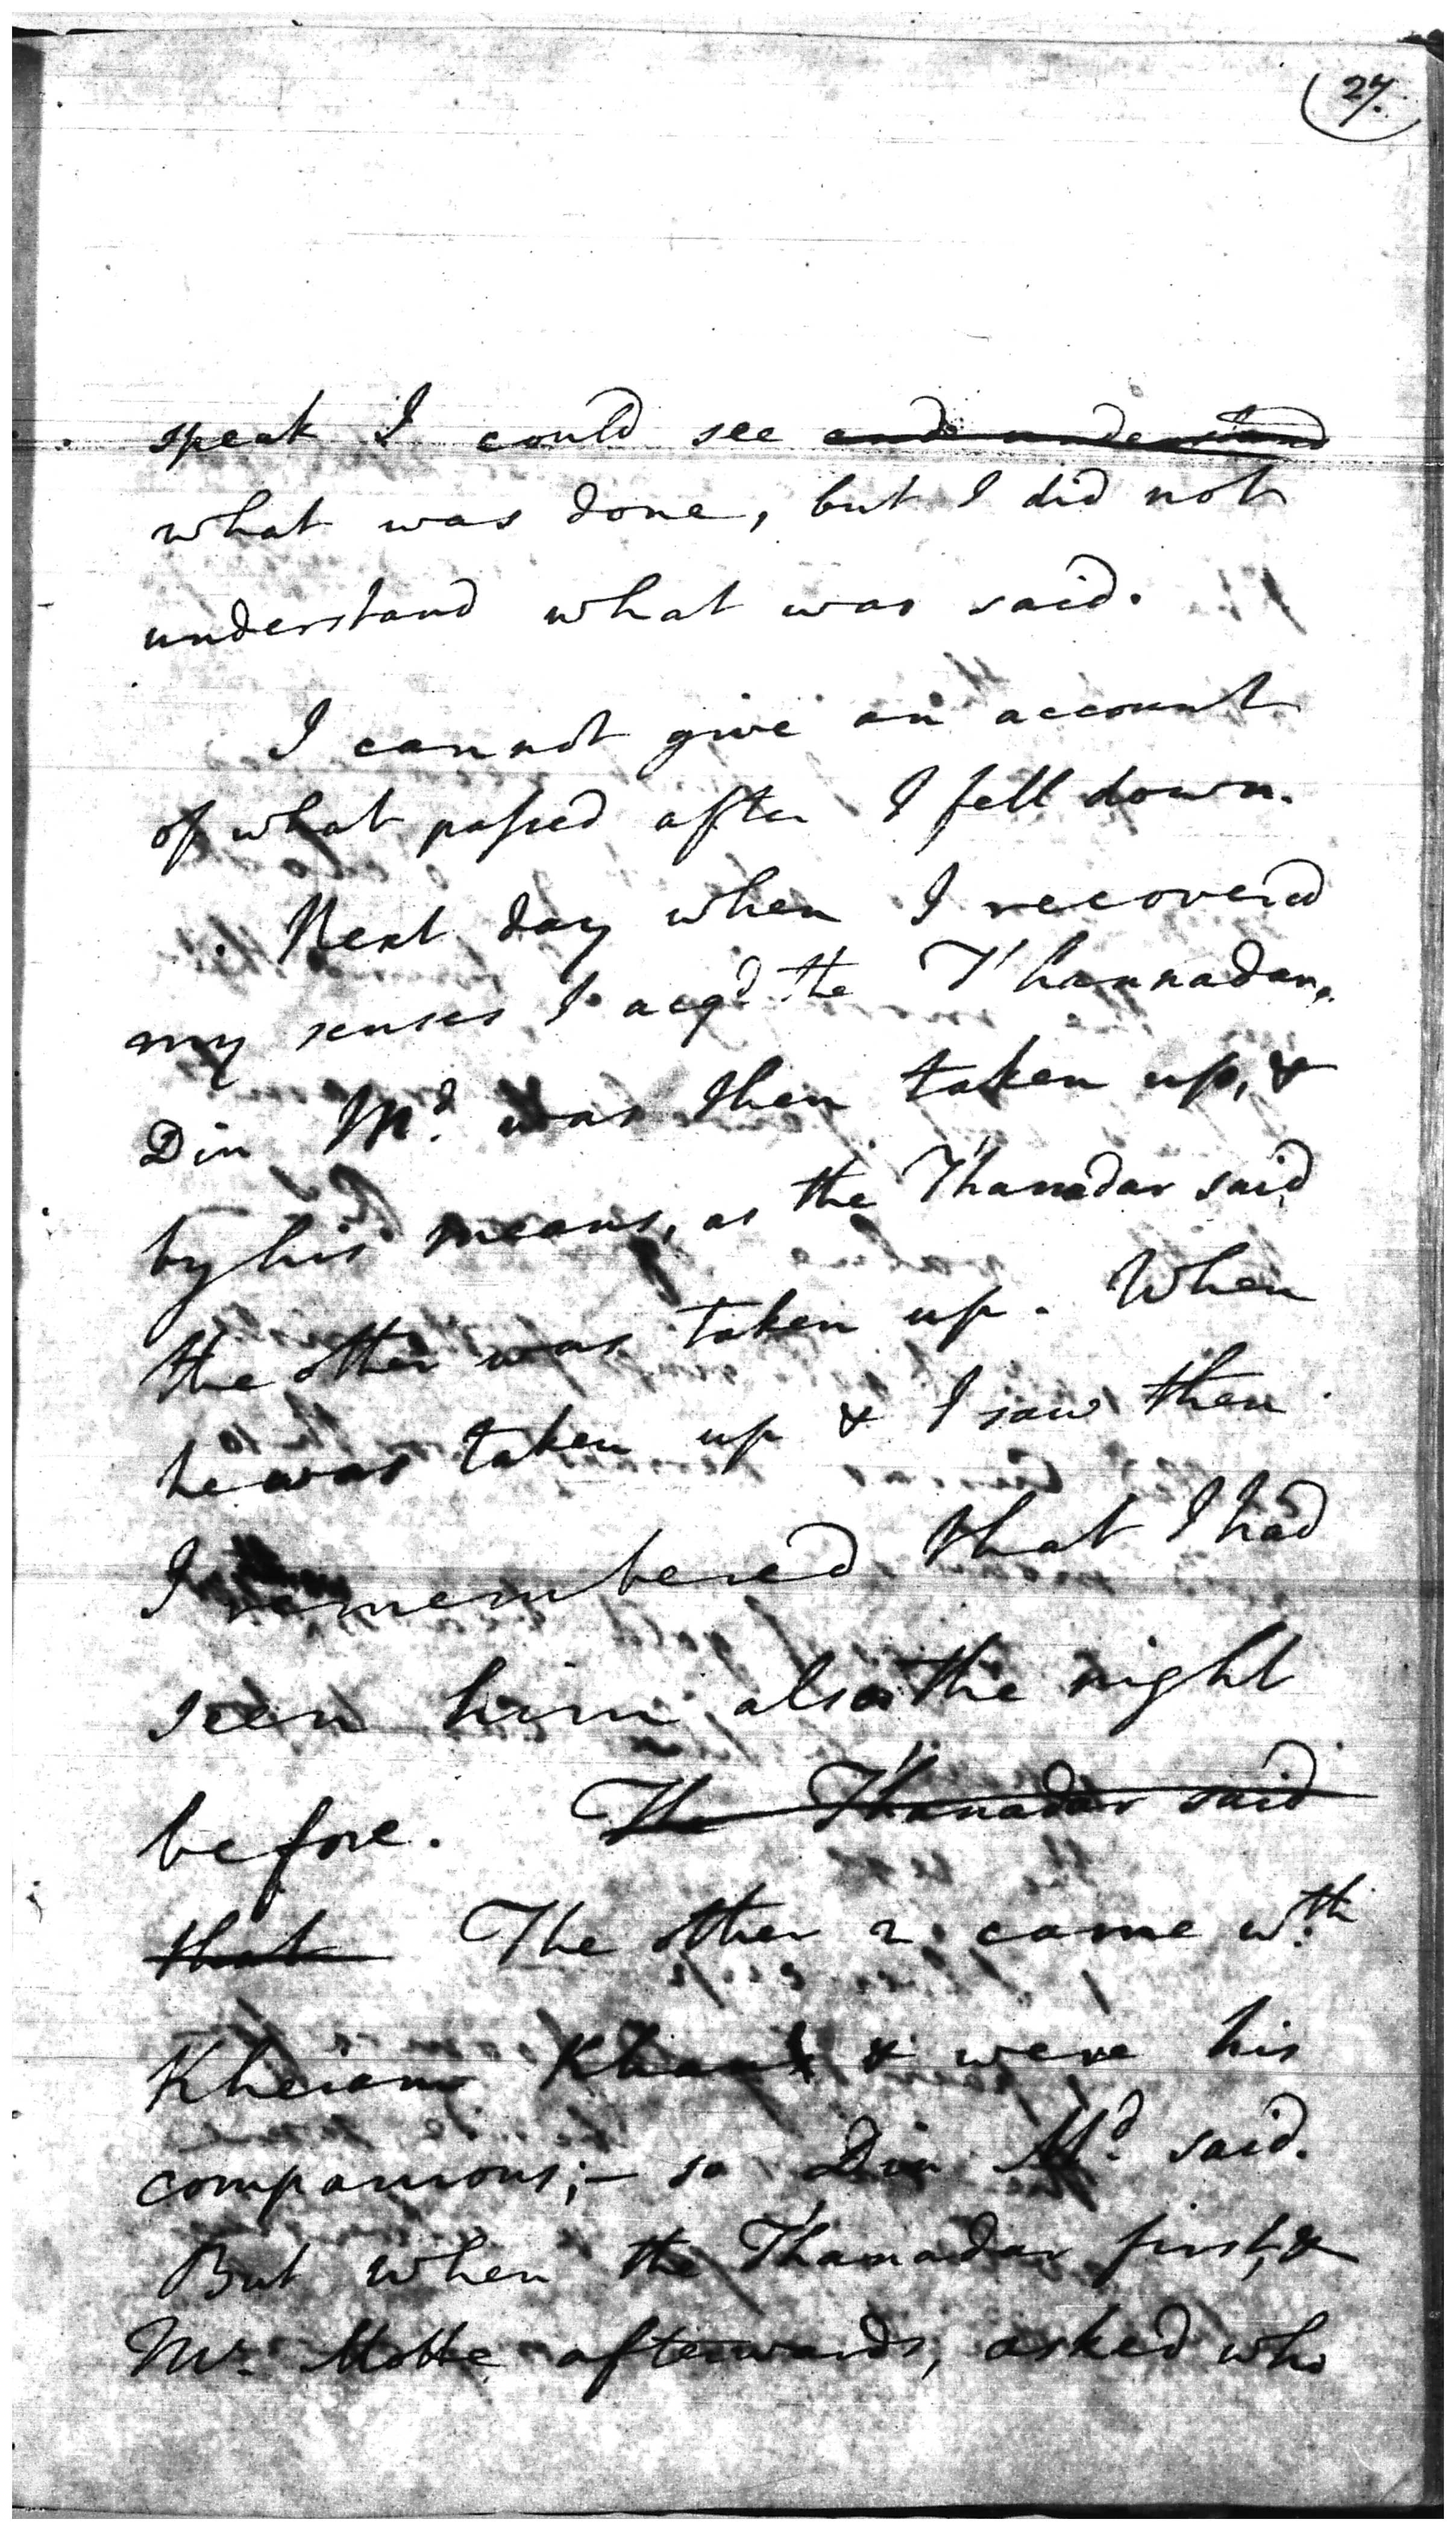 27.
speak I could see ~~and understand~~
what was done, but I did not
understand what was said.
I cannot give an account
of what passed after I fell down.
Next day when I recovered
my senses I acqd the Thannadar,
Din Md. was then taken up, &
by his means, as the Thanadar said
the other was taken up. When
he was taken up & I saw then
I remembered that I had
seen him also the night
before. ~~The Thanadar said~~
~~that~~ The other 2 came wth
Kheiam Khan & were his
companions; – so Din Md. said.
But when the Thanadar first, &
Mr. Motte afterwards, asked who